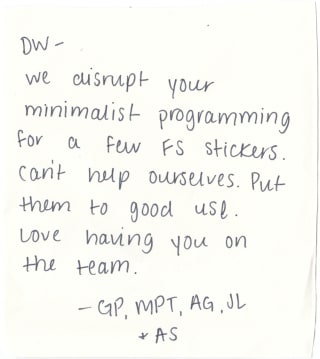 DW-
we disrupt your
minimalist programming
for a few FS stickers.
Can't help ourselves. Put
them to good use.
Love having you on
the team.
- GP, MPT, AG, JL
+ AS